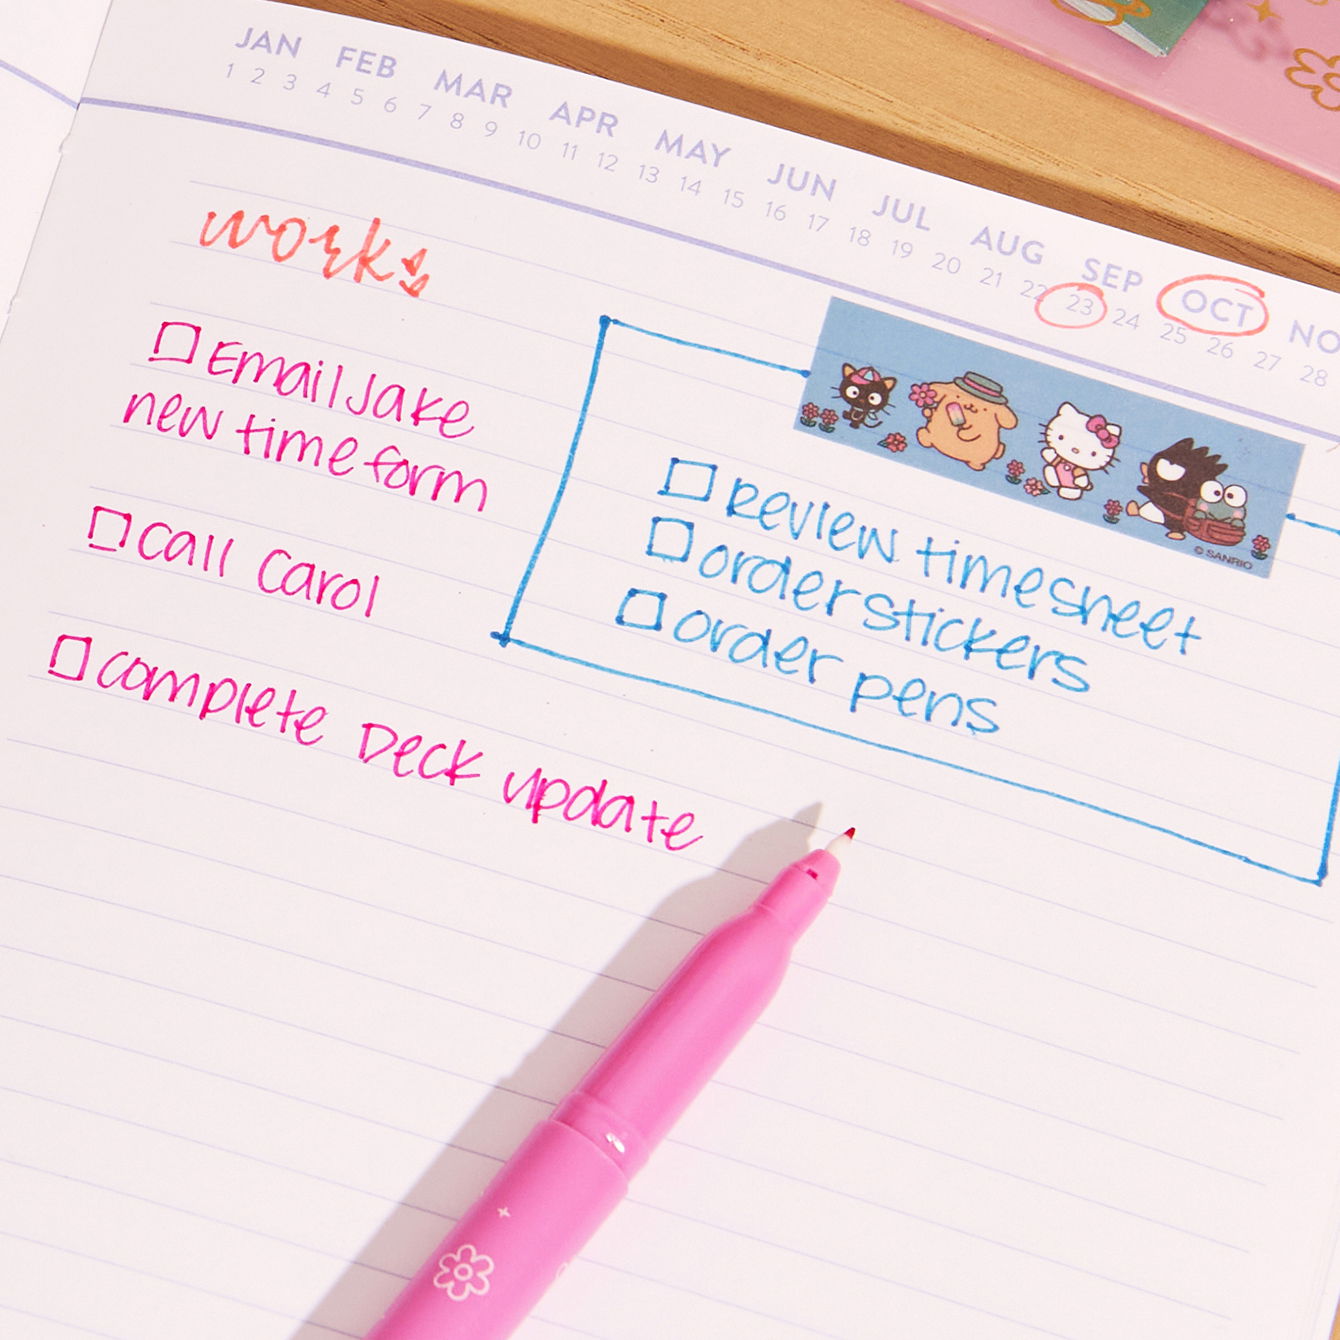 JAN FEB MAR APR MAY JUN JUL AUG SEP OCT NO
1 2 3 4 5 6 7 8 9 10 11 12 13 14 15 16 17 18 19 20 21 22 23 24 25 26 27 28
works
Email Jake
new time form
call Carol
complete Deck update
© SANRIO
Review timesheet
order stickers
order pens